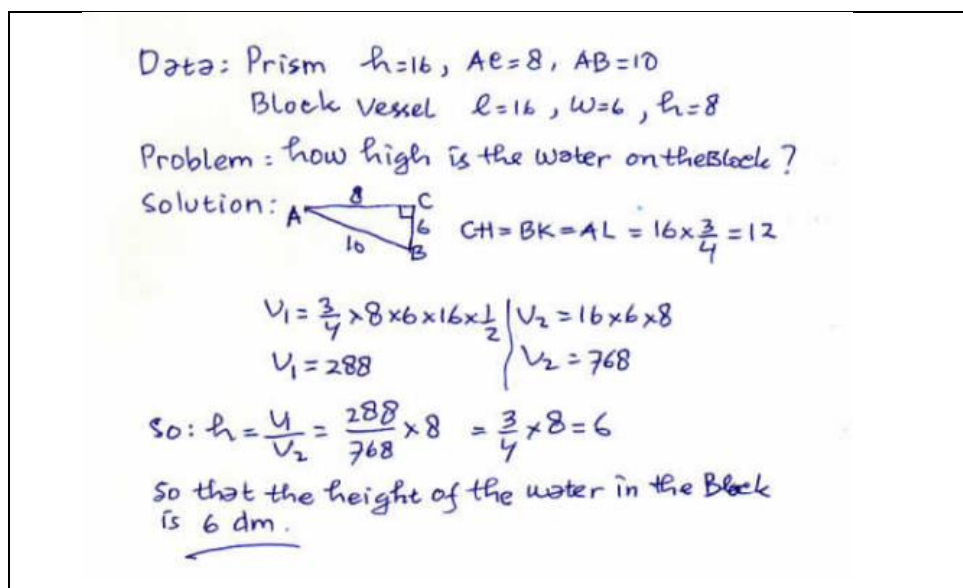 Data: Prism h=16, AC=8, AB=10
Block Vessel l=16, w=6, h=8
Problem: how high is the water on the Block?
Solution: A 8 C 6 10 B CH=BK=AL = 16×3/4 = 12
V₁ = 3/4 ×8×6×16×1/2 | V₂ = 16×6×8
V₁ = 288 | V₂ = 768
So: h = V₁/V₂ = 288/768 × 8 = 3/4 × 8 = 6
So that the height of the water in the Block
is 6 dm.